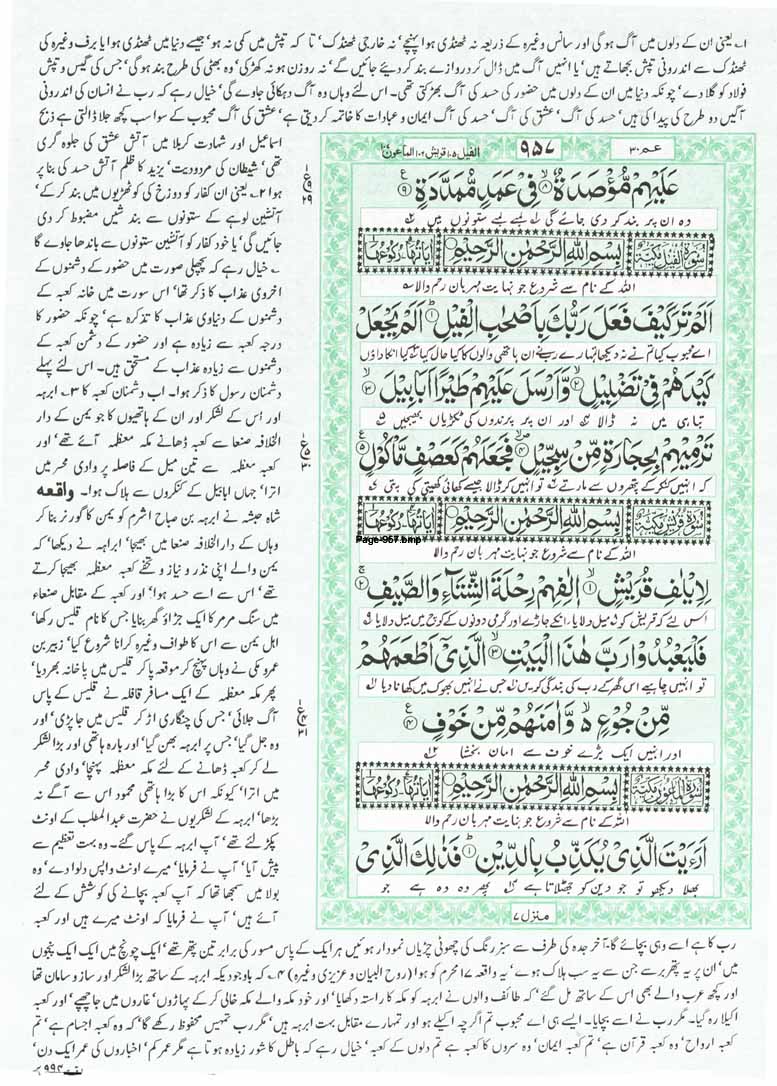 ۱۔ یعنی ان کے دلوں میں آگ ہوگی اور سانس وغیرہ کے ذریعہ نہ ٹھنڈی ہوا پہنچے' نہ خارجی ٹھنڈک' تا کہ تپش میں کمی نہ ہو' جیسے دنیا میں ٹھنڈی ہوا یا برف وغیرہ کی
ٹھنڈک سے اندرونی تپش بجھاتے ہیں' یا انہیں آگ میں ڈال کر دروازے بند کر دیئے جائیں گے' نہ روزن ہو نہ کھڑکی' وہ بھٹی کی طرح بند ہوگی' جس کی گیس و تپش
فولاد کو گلا دے' چونکہ دنیا میں ان کے دلوں میں حضور کی حسد کی آگ بھڑکتی تھی۔ اس لئے وہاں وہ آگ دہکائی جاوے گی' خیال رہے کہ رب نے انسان کی اندرونی
آگیں دو طرح کی پیدا کی ہیں' حسد کی آگ' عشق کی آگ' حسد کی آگ ایمان و عبادات کا خاتمہ کر دیتی ہے' عشق کی آگ محبوب کے سوا سب کچھ جلا ڈالتی ہے ذبح
اسماعیل اور شہادت کربلا میں آتش عشق کی جلوہ گری
تھی' شیطان کی مردودیت' یزید کا ظلم آتش حسد کی بنا پر
ہوا ۲۔ یعنی ان کفار کو دوزخ کی کوٹھڑیوں میں بند کر کے'
آتشین لوہے کے ستونوں سے بند شیں مضبوط کر دی
جائیں گی' یا خود کفار کو آتشین ستونوں سے باندھا جاوے گا
۔ خیال رہے کہ پچھلی صورت میں حضور کے دشمنوں کے
اخروی عذاب کا ذکر تھا' اس سورت میں خانہ کعبہ کے
دشمنوں کے دنیاوی عذاب کا تذکرہ ہے' چونکہ حضور کا
درجہ کعبہ سے زیادہ ہے اور حضور کے دشمن کعبہ کے
دشمنوں سے زیادہ عذاب کے مستحق ہیں۔ اس لئے پہلے
دشمنان رسول کا ذکر ہوا۔ اب دشمنان کعبہ کا ۳۔ ابرہہ
اور اس کے لشکر اور ان کے ہاتھیوں کا جو یمن کے دار
الخلافہ صنعا سے کعبہ ڈھانے مکہ معظمہ آئے تھے' اور
کعبہ معظمہ سے تین میل کے فاصلہ پر وادی محسر میں
اترا' جہاں ابابیل کے کنکروں سے ہلاک ہوا۔ واقعہ
شاہ حبشہ نے ابرہہ بن صباح اشرم کو یمن کا گورنر بنا کر
وہاں کے دارالخلافہ صنعا میں بھیجا' ابراہہ نے دیکھا' کہ
یمن والے اپنی نذر و نیاز و تحفے کعبہ معظمہ بھیجا کرتے
تھے' اس سے اسے حسد ہوا' اور کعبہ کے مقابل صنعاء
میں سنگ مرمر کا ایک جڑاؤ گھر بنایا' جس کا نام قلیس رکھا'
اہل یمن سے اس کا طواف وغیرہ کرانا شروع کیا' زبیر بن
عمرو مکی نے وہاں پہنچ کر موقعہ پا کر قلیس میں پاخانہ بھر دیا'
پھر مکہ معظمہ کے ایک مسافر قافلہ نے قلیس کے پاس
آگ جلائی' جس کی چنگاری اڑ کر قلیس میں جا پڑی' اور
وہ جل گیا' جس پر ابرہہ بھن گیا' اور بارہ ہاتھی اور بڑا لشکر
لے کر کعبہ ڈھانے کے لئے مکہ معظمہ پہنچا' وادی محسر
میں اترا' کیونکہ اس کا بڑا ہاتھی محمود اس سے آگے نہ
بڑھا' ابرہہ کے لشکریوں نے حضرت عبدالمطلب کے اونٹ
پکڑ لئے تھے' آپ ابرہہ کے پاس گئے۔ وہ بہت تعظیم سے
پیش آیا' آپ نے فرمایا' میرے اونٹ واپس دلوا دے' وہ
بولا میں سمجھا تھا کہ آپ کعبہ بچانے کی کوشش کے لئے
آئے ہیں' آپ نے فرمایا کہ اونٹ میرے ہیں اور کعبہ
عم ۳۰
۹۵۷
الفیل ۱۰۵ قریش ۱۰۶ الماعون ۱۰۷
عَلَيْهِمْ مُّؤْصَدَةٌ ۸ فِيْ عَمَدٍ مُّمَدَّدَةٍ ۹
وہ ان پر بند کر دی جائے گی لمبے لمبے ستونوں میں
سورۃ الفیل مکیۃ بِسْمِ اللهِ الرَّحْمٰنِ الرَّحِيْمِ
اللہ کے نام سے شروع جو نہایت مہربان رحم والا
اَلَمْ تَرَ كَيْفَ فَعَلَ رَبُّكَ بِاَصْحٰبِ الْفِيْلِ ۱ اَلَمْ يَجْعَلْ
اے محبوب کیا تم نے نہ دیکھا تمہارے رب نے ان ہاتھی والوں کا کیا حال کیا کیا انکا داؤں
كَيْدَهُمْ فِيْ تَضْلِيْلٍ ۲ وَّاَرْسَلَ عَلَيْهِمْ طَيْرًا اَبَابِيْلَ ۳
تباہی میں نہ ڈالا اور ان پر پرندوں کی ٹکڑیاں بھیجیں
تَرْمِيْهِمْ بِحِجَارَةٍ مِّنْ سِجِّيْلٍ ۴ فَجَعَلَهُمْ كَعَصْفٍ مَّاْكُوْلٍ ۵
کہ انہیں کنکر کے پتھروں سے مارتے تو انہیں کر ڈالا جیسے کھائی کھیتی کی پتی
سورۃ قریش مکیۃ بِسْمِ اللهِ الرَّحْمٰنِ الرَّحِيْمِ
Page-957.bmp
اللہ کے نام سے شروع جو نہایت مہربان رحم والا
لِاِيْلٰفِ قُرَيْشٍ ۱ اٖلٰفِهِمْ رِحْلَةَ الشِّتَآءِ وَالصَّيْفِ ۲
اس لئے کہ قریش کو میل دلایا انکے جاڑے اور گرمی دونوں کے کوچ میں میل دلایا
فَلْيَعْبُدُوْا رَبَّ هٰذَا الْبَيْتِ ۳ الَّذِيْٓ اَطْعَمَهُمْ
تو انہیں چاہیے اس گھر کے رب کی بندگی کریں جس نے انہیں بھوک میں کھانا دیا
مِّنْ جُوْعٍ وَّاٰمَنَهُمْ مِّنْ خَوْفٍ ۴
اور انہیں ایک بڑے خوف سے امان بخشا
سورۃ الماعون مکیۃ بِسْمِ اللهِ الرَّحْمٰنِ الرَّحِيْمِ
اللہ کے نام سے شروع جو نہایت مہربان رحم والا
اَرَءَيْتَ الَّذِيْ يُكَذِّبُ بِالدِّيْنِ ۱ فَذٰلِكَ الَّذِيْ
بھلا دیکھو تو جو دین کو جھٹلاتا ہے پھر وہ وہ ہے جو
منزل ۷
رب کا ہے اسے وہی بچائے گا۔ آخر جدہ کی طرف سے سبز رنگ کی چھوٹی چڑیاں نمودار ہوئیں ہر ایک کے پاس مسور کی برابر تین پتھر تھے' ایک چونچ میں ایک ایک پنجوں
میں' ان پر یہ پتھر برسے جن سے یہ سب ہلاک ہوے' یہ واقعہ ۱۷ محرم کو ہوا (روح البیان و عزیزی وغیرہ) ۴۔ کہ باوجودیکہ ابرہہ کے ساتھ بڑا لشکر اور ساز و سامان تھا
اور کچھ عرب والے بھی اس کے ساتھ مل گئے' کہ طائف والوں نے ابرہہ کو مکہ کا راستہ دکھایا' اور خود مکہ والے مکہ خالی کر کے پہاڑوں' غاروں میں جا چھپے' اور کعبہ
اکیلا رہ گیا۔ مگر رب نے اسے بچالیا۔ ایسے ہی اے محبوب تم اگرچہ اکیلے ہو اور تمہارے مقابل بہت ابرہہ ہیں' مگر رب تمہیں محفوظ رکھے گا' کہ وہ کعبہ اجسام ہے' تم
کعبہ ارواح' وہ کعبہ قرآن ہے' تم کعبہ ایمان' وہ سروں کا کعبہ ہے تم دلوں کے کعبہ' خیال رہے کہ باطل کا شور زیادہ ہوتا ہے مگر عمر کم' اخباروں کی عمر ایک دن'